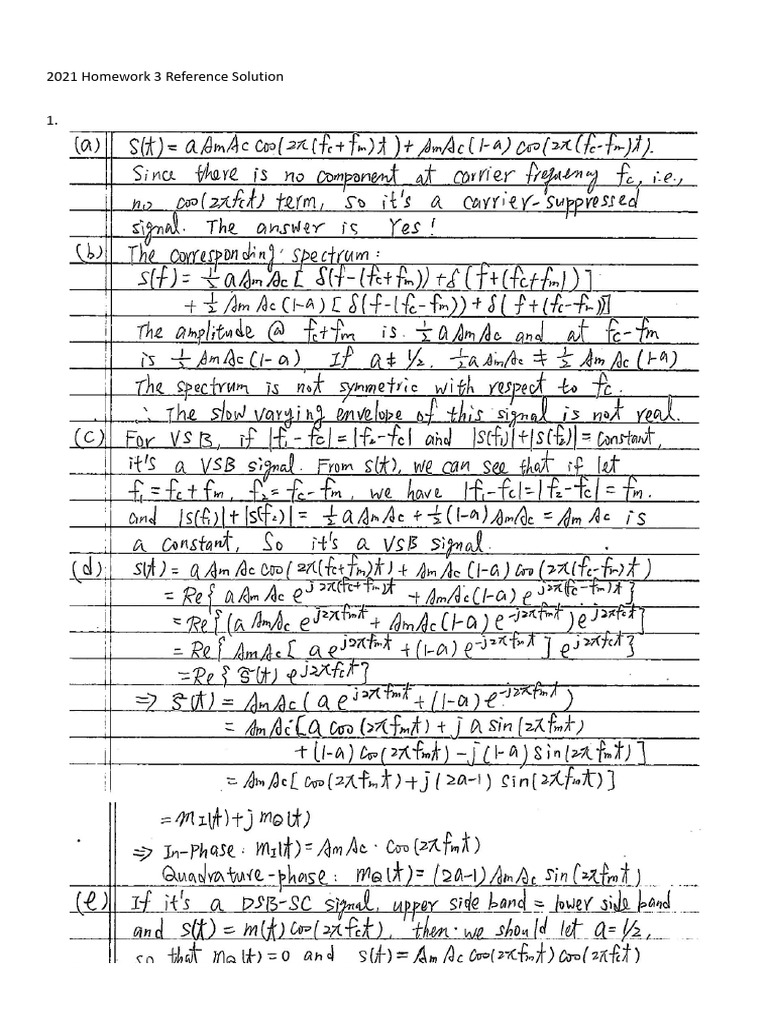 2021 Homework 3 Reference Solution
1.
(a) S(t) = a AmAc cos(2π(fc+fm)t) + AmAc(1-a) cos(2π(fc-fm)t).
Since there is no component at carrier frequency fc, i.e.,
no cos(2πfct) term, so it's a carrier-suppressed
signal. The answer is Yes!
(b) The corresponding spectrum:
S(f) = ½ a AmAc [ δ(f-(fc+fm)) + δ(f+(fc+fm)) ]
+ ½ AmAc(1-a) [ δ(f-(fc-fm)) + δ(f+(fc-fm)) ]
The amplitude @ fc+fm is ½ a AmAc and at fc-fm
is ½ AmAc(1-a). If a ≠ 1/2, ½ a AmAc ≠ ½ AmAc(1-a)
The spectrum is not symmetric with respect to fc.
∴ The slow varying envelope of this signal is not real.
(c) For VSB, if |f₁-fc| = |f₂-fc| and |S(f₁)|+|S(f₂)| = constant,
it's a VSB signal. From S(t), we can see that if let
f₁ = fc+fm, f₂ = fc-fm, we have |f₁-fc| = |f₂-fc| = fm.
and |S(f₁)|+|S(f₂)| = ½ a AmAc + ½(1-a)AmAc = AmAc is
a constant, So it's a VSB signal.
(d) S(t) = a AmAc cos(2π(fc+fm)t) + AmAc(1-a) cos(2π(fc-fm)t)
= Re{ a AmAc e^{j2π(fc+fm)t} + AmAc(1-a) e^{j2π(fc-fm)t} }
= Re{ (a AmAc e^{j2πfmt} + AmAc(1-a) e^{-j2πfmt}) e^{j2πfct} }
= Re{ AmAc [ a e^{j2πfmt} + (1-a) e^{-j2πfmt} ] e^{j2πfct} }
= Re{ s̃(t) e^{j2πfct} }
⇒ s̃(t) = AmAc( a e^{j2πfmt} + (1-a) e^{-j2πfmt} )
= AmAc [ a cos(2πfmt) + j a sin(2πfmt)
+ (1-a) cos(2πfmt) - j(1-a) sin(2πfmt) ]
= AmAc [ cos(2πfmt) + j(2a-1) sin(2πfmt) ]
= mI(t) + j mQ(t)
⇒ In-Phase: mI(t) = AmAc · cos(2πfmt)
Quadrature-phase: mQ(t) = (2a-1) AmAc sin(2πfmt)
(e) If it's a DSB-SC signal, upper side band = lower side band
and S(t) = m(t) cos(2πfct), then we should let a = 1/2,
so that mQ(t) = 0 and S(t) = AmAc cos(2πfmt) cos(2πfct)